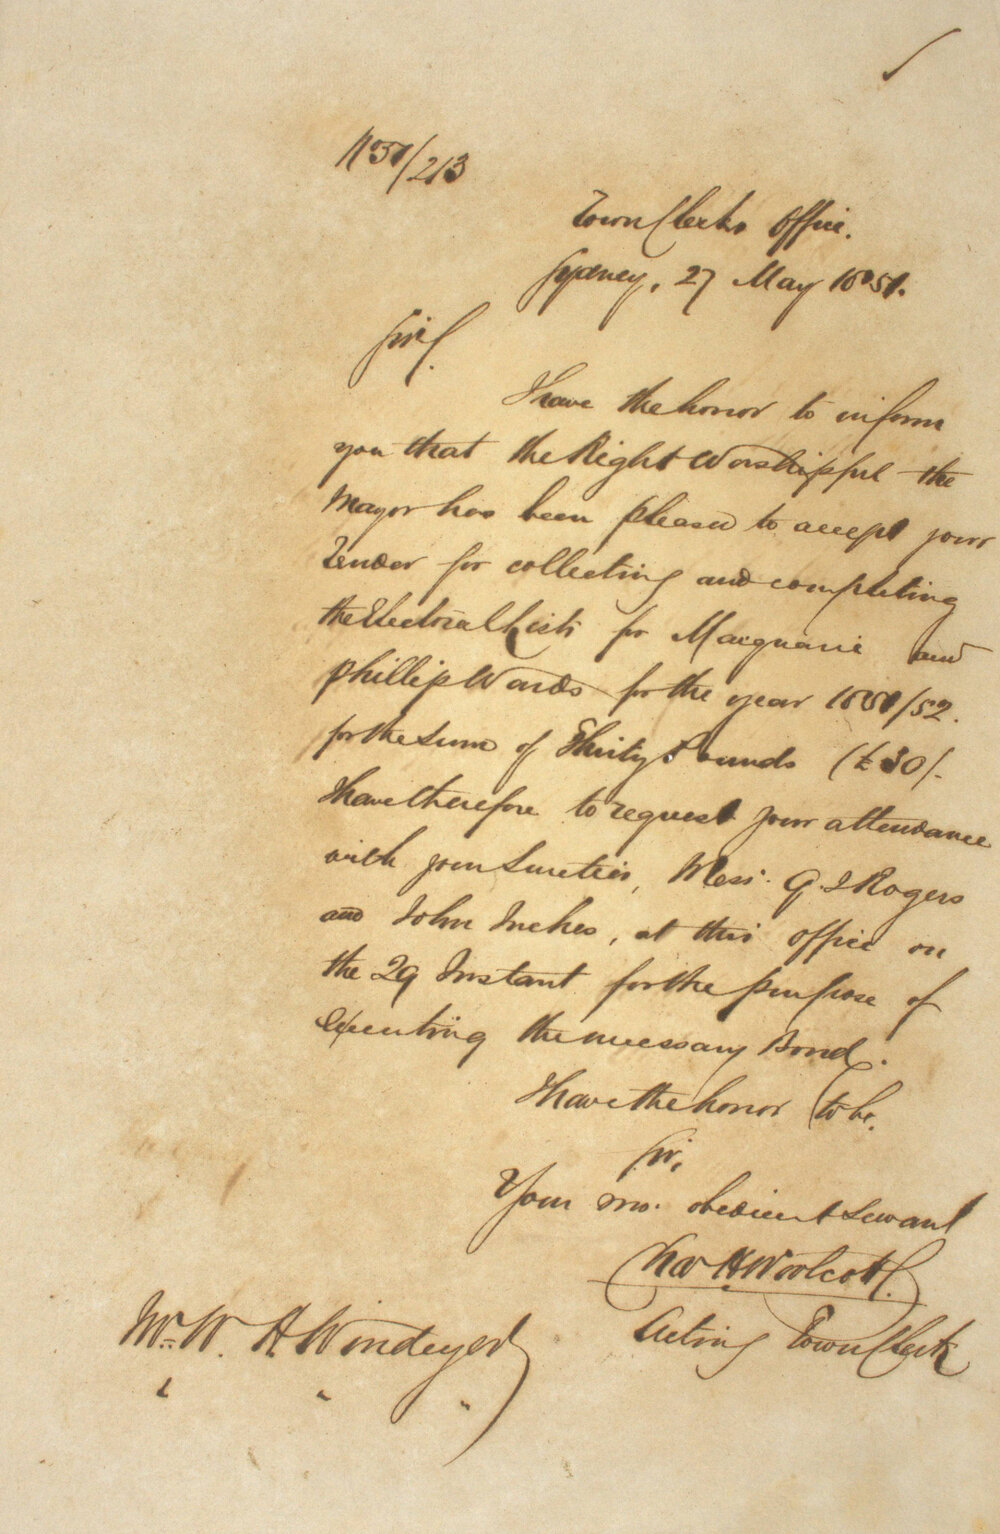 No 51/213
Town Clerks Office.
Sydney, 27 May 1851.
Sir,
I have the honor to inform
you that the Right Worshipful the
Mayor has been pleased to accept your
Tender for collecting and completing
the Electoral Lists for Macquarie and
Phillip Wards for the year 1851/52.
for the Sum of Thirty Pounds (£30/.
I have therefore to request your attendance
with your Sureties, Mess. G J Rogers
and John Inches, at this office on
the 29 Instant for the purpose of
executing the necessary Bond.
I have the honor to be.
Sir,
Your mo. obedient Servant
Chas H Woolcott.
Acting Town Clerk
Mr. W. A Windeyer